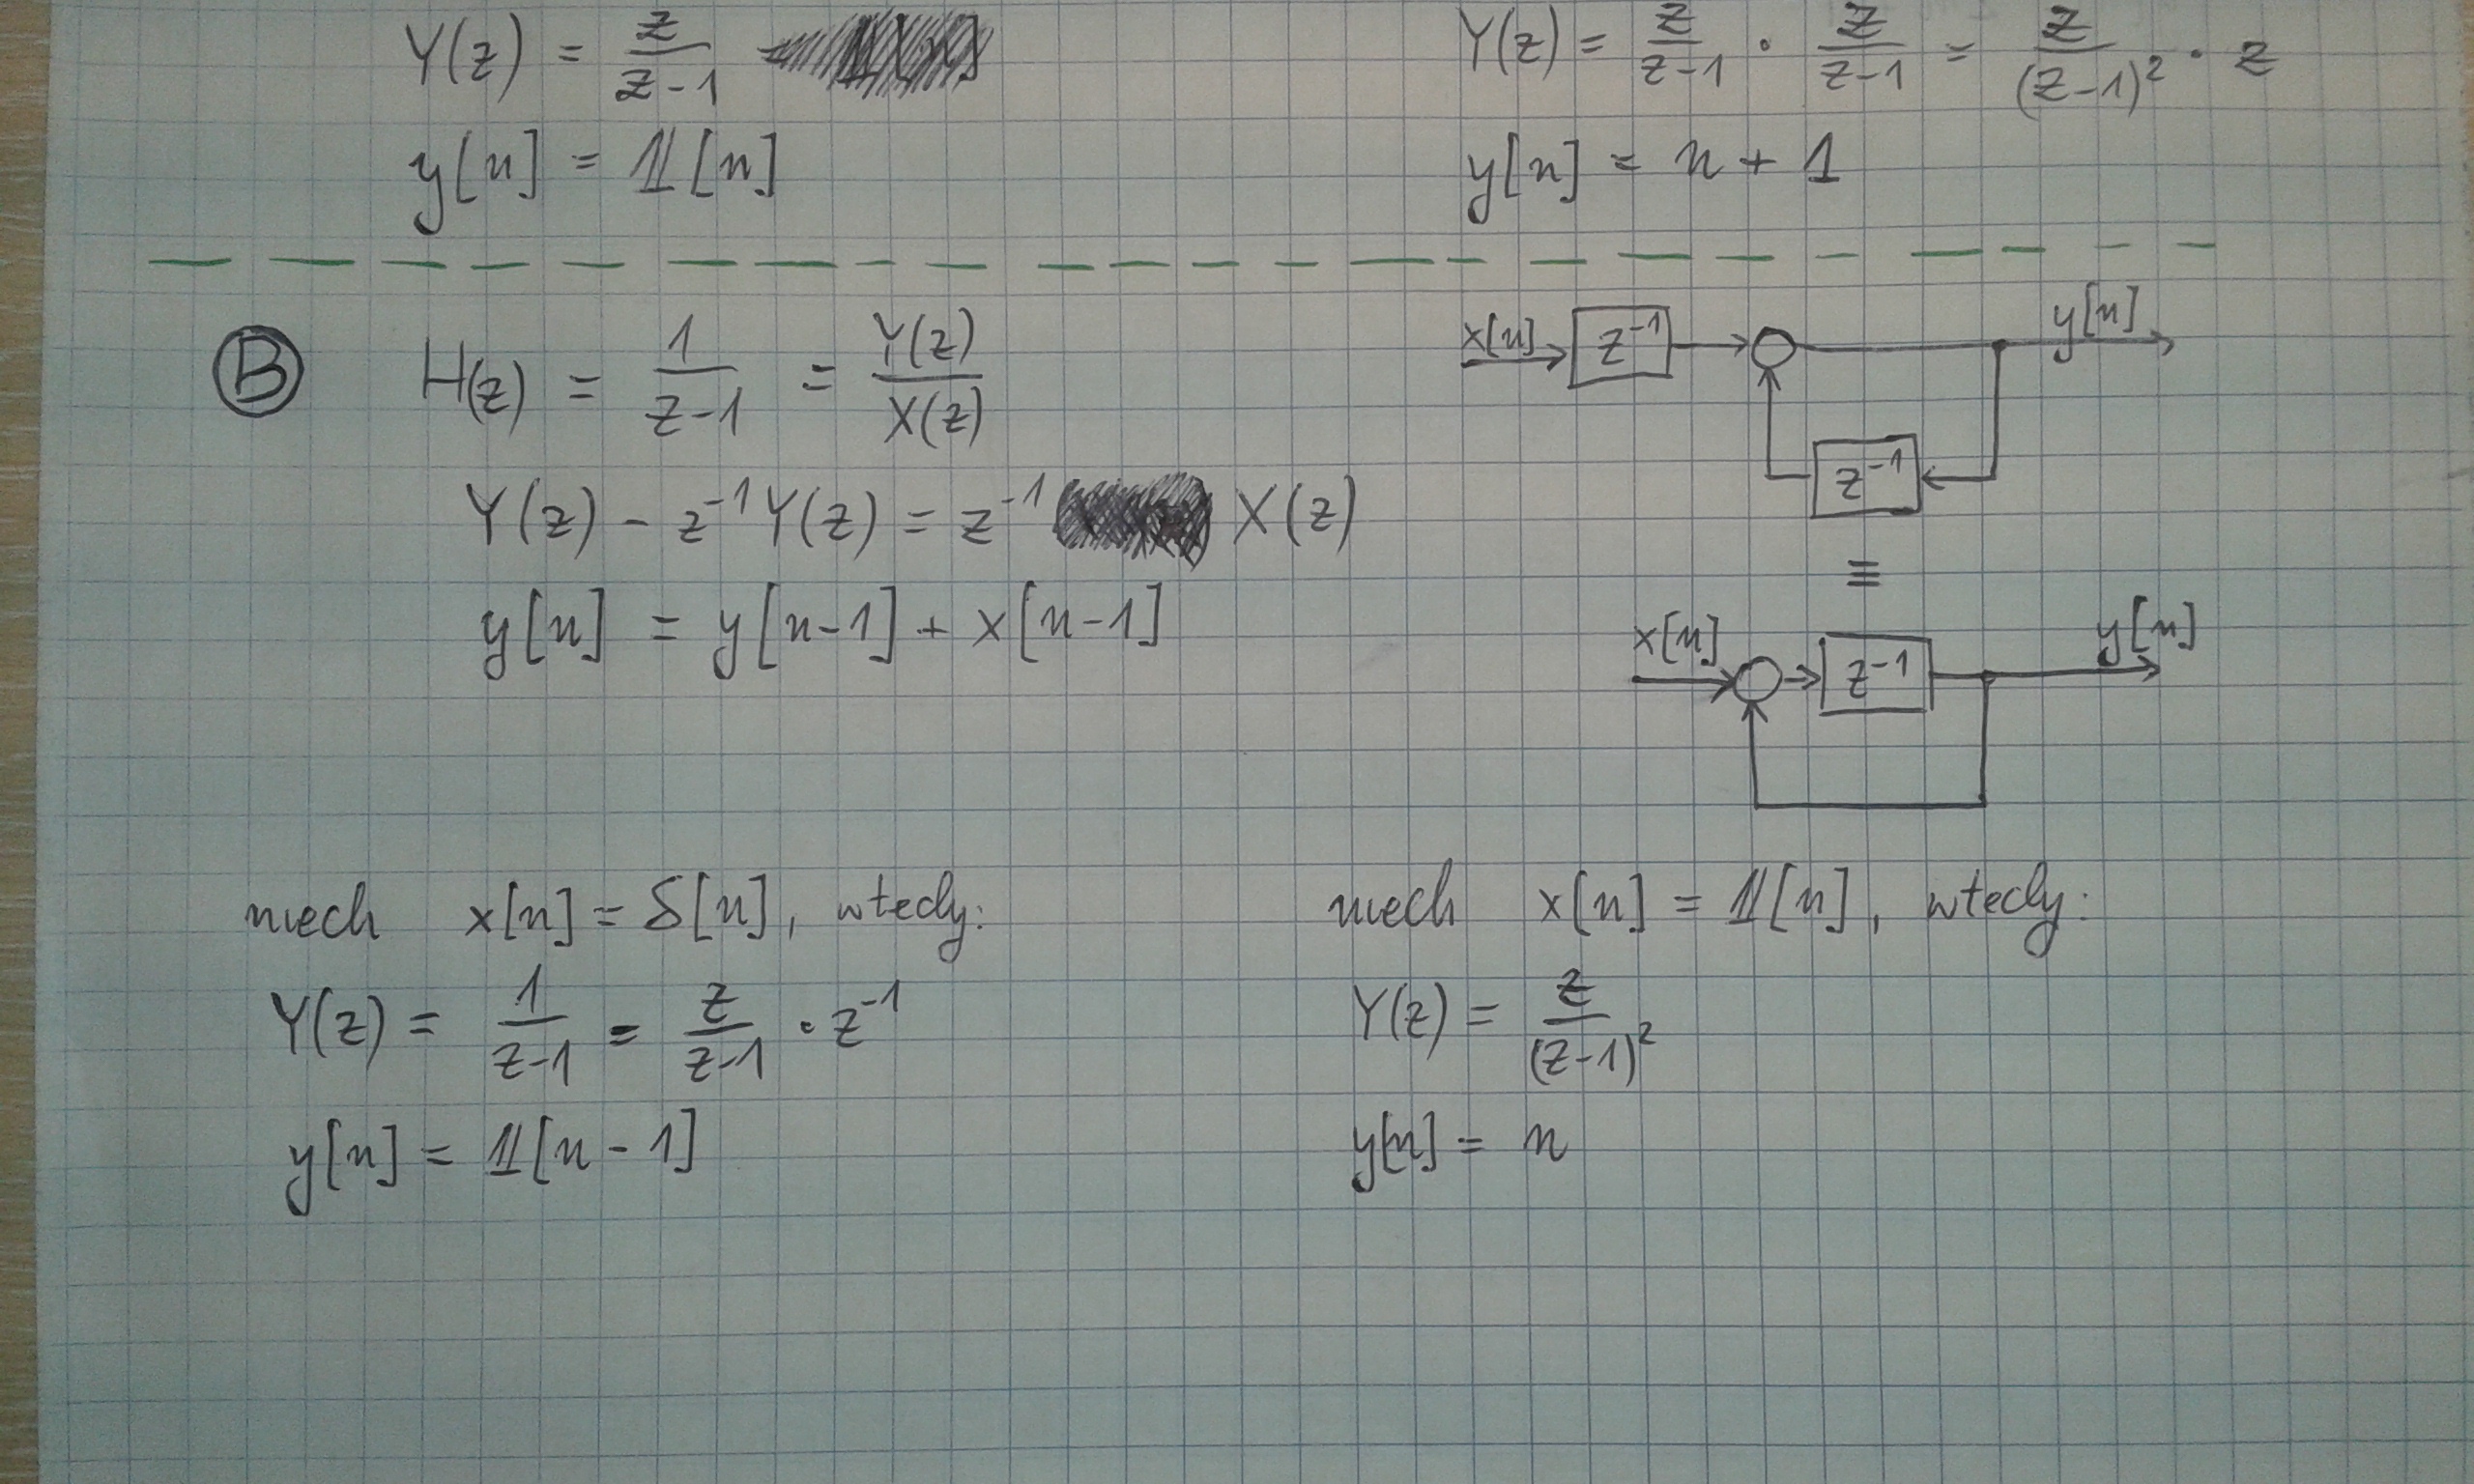 Y(z) = z/(z-1)
y[n] = 𝟙[n]
Y(z) = z/(z-1) · z/(z-1) = z/(z-1)² · z
y[n] = n + 1
B
H(z) = 1/(z-1) = Y(z)/X(z)
Y(z) - z⁻¹Y(z) = z⁻¹ X(z)
y[n] = y[n-1] + x[n-1]
x[n] z⁻¹ y[n]
z⁻¹
≡
x[n] z⁻¹ y[n]
niech x[n] = δ[n], wtedy:
Y(z) = 1/(z-1) = z/(z-1) · z⁻¹
y[n] = 𝟙[n-1]
niech x[n] = 𝟙[n], wtedy:
Y(z) = z/(z-1)²
y[n] = n